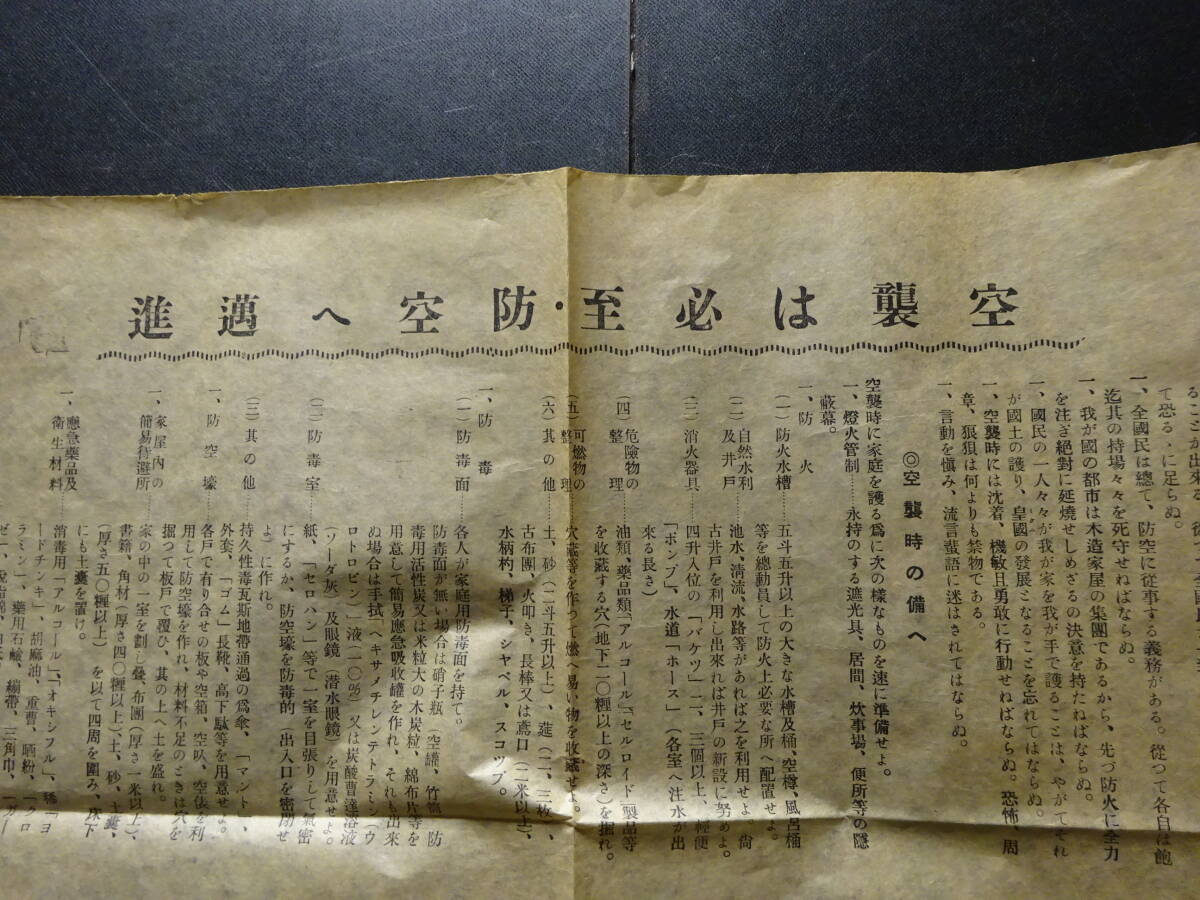 空襲は必至・防空へ邁進
て恐るゝに足らぬ。
一、全國民は總て、防空に從事する義務がある。從つて各自は飽
迄其の持場々々を死守せねばならぬ。
一、我が國の都市は木造家屋の集團であるから、先づ防火に全力
を注ぎ絶對に延燒せしめざるの決意を持たねばならぬ。
一、國民の一人々々が我が家を我が手で護ることは、やがてそれ
が國土の護り、皇國の發展となることを忘れてはならぬ。
一、空襲時には沈着、機敏且勇敢に行動せねばならぬ。恐怖、周
章、狼狽は何よりも禁物である。
一、言動を愼み、流言蜚語に迷はされてはならぬ。
◎空襲時の備へ
空襲時に家庭を護る爲に次の樣なものを速に準備せよ。
一、燈火管制……永持のする遮光具、居間、炊事場、便所等の隱
蔽幕。
一、防火
(一)防火水槽……五斗五升以上の大きな水槽及桶、空樽、風呂桶
等を總動員して防火上必要な所へ配置せよ。
(二)自然水利及井戸……池水、淸流、水路等があれば之を利用せよ、尙
古井戸を利用し出來れば井戸の新設に努めよ。
(三)消火器具……四升入位の「バケツ」二、三個以上、輕便
「ポンプ」、水道「ホース」(各室へ注水が出
來る長さ)
(四)危險物の整理……油類、藥品類、「アルコール」、「セルロイド」製品等
を收藏する穴(地下二〇糎以上の深さ)を掘れ。
(五)可燃物の整理……穴藏等を作って燃へ易い物を收藏せよ。
(六)其の他……土、砂(二斗五升以上)、莚(二、三枚)、
古布團、火叩き、長棒又は鳶口(二米以上)、
水柄杓、梯子、シヤベル、スコツプ。
一、防毒
(一)防毒面……各人が家庭用防毒面を持て。
防毒面が無い場合は硝子瓶、空罐、竹筒、防
毒用活性炭又は米粒大の木炭粒、綿布片等を
用意して簡易應急吸收罐を作れ、それも出來
ぬ場合は手拭「ヘキサメチレンテトラミン(ウ
ロトロピン)」液(二〇%)又は炭酸曹達溶液
(ソーダ灰)及眼鏡(潜水眼鏡)を用意せよ。
(二)防毒室……紙、「セロハン」等で一室を目張りして氣密
にするか、防空壕を防毒的(出入口を密閉せ
よ)に作れ。
(三)其の他……持久性毒瓦斯地帶通過の爲傘、「マント」、
外套、「ゴム」長靴、高下駄等を用意せよ。
一、防空壕……各戸で有り合せの板や空箱、空叺、空俵を利
用して防空壕を作れ、材料不足のときは穴を
掘つて板戸で覆ひ、其の上へ土を盛れ。
一、家屋內の簡易待避所……家の中の一室を劃し疊、布團(厚さ一米以上)、
書籍、角材(厚さ四〇糎以上)、土、砂、土嚢、
(厚さ五〇糎以上)を以て四周を圍み、床下
にも土嚢を置け。
一、應急藥品及衞生材料……消毒用「アルコール」、「オキシフル」、稀「ヨ
ードチンキ」、胡麻油、重曹、晒粉、「クロ
ラミン」、藥用石鹼、繃帶、三角巾、「ガー